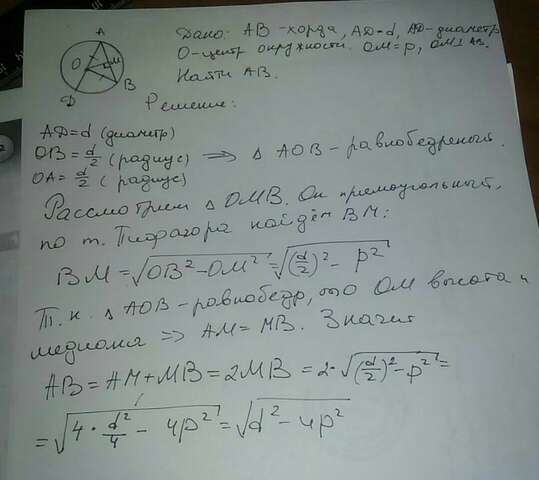 Дано: AB - хорда, AD=d, AD-диаметр
O-центр окружности. OM=p, OM⊥AB.
Найти AB.
A
O
M
B
D
Решение:
AD=d (диаметр)
OB=d/2 (радиус) ⇒ Δ AOB - равнобедреный.
OA=d/2 (радиус)
Рассмотрим Δ OMB. Он прямоугольный,
по т. Пифагора найдём BM:
BM=√(OB²-OM²)=√((d/2)²-p²)
Т.к. Δ AOB-равнобедр, то OM высота и
медиана ⇒ AM=MB. Значит
AB=AM+MB=2MB=2·√((d/2)²-p²)=
=√(4·d²/4-4p²)=√(d²-4p²)